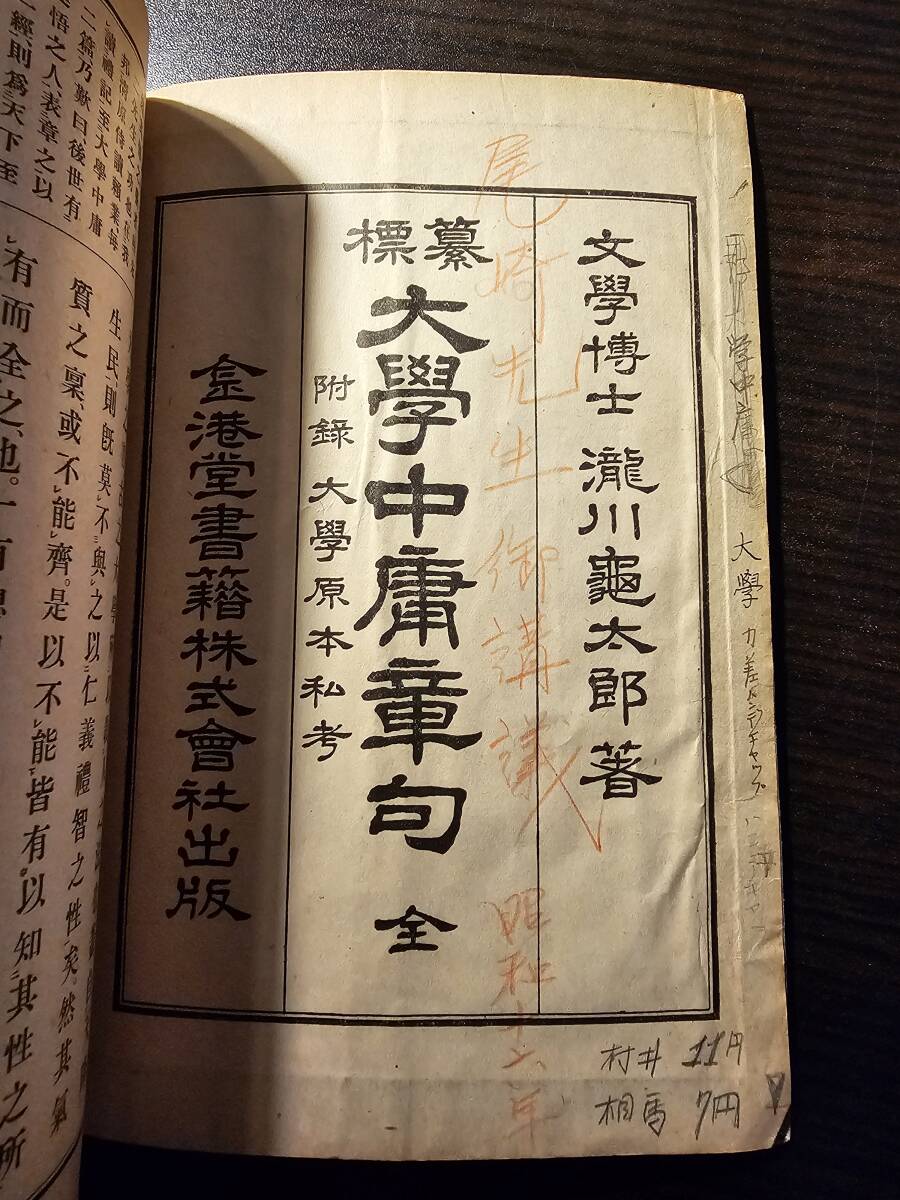 文學博士 瀧川龜太郎 著
纂標
大學中庸章句 全
附錄 大學原本私考
金港堂書籍株式會社出版
尾崎先生御講議
昭和十六年
大學
村井 11円
相馬 7円
讀禮記至大學中庸
二篇乃歎曰後世有
悟之人表章之以
經則爲天下至
生民則既莫不與之以仁義禮智之性矣然其氣
質之稟或不能齊。是以不能皆有。以知其性之所
有而全之也。一有